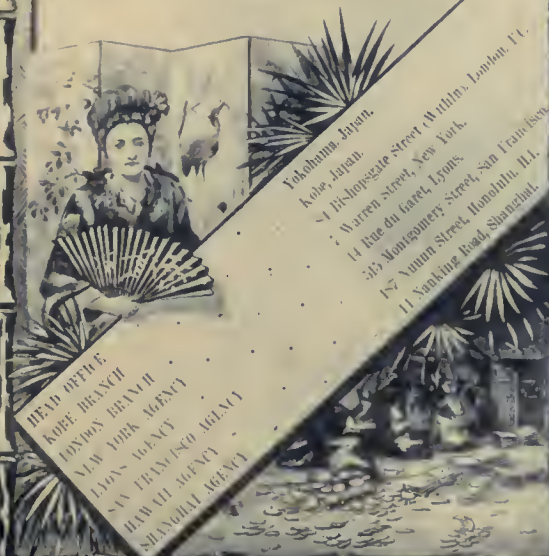 HEAD OFFICE . . . Yokohama, Japan.
KOBE BRANCH . . . Kobe, Japan.
LONDON BRANCH . . . Bishopsgate Street (Within), London, E.C.
NEW YORK AGENCY . . . Warren Street, New York.
LYONS AGENCY . . . 14 Rue du Garet, Lyons.
SAN FRANCISCO AGENCY . . . Montgomery Street, San Francisco
HAWAII AGENCY . . . Nuuanu Street, Honolulu, H.I.
SHANGHAI AGENCY . . . 11 Nanking Road, Shanghai.